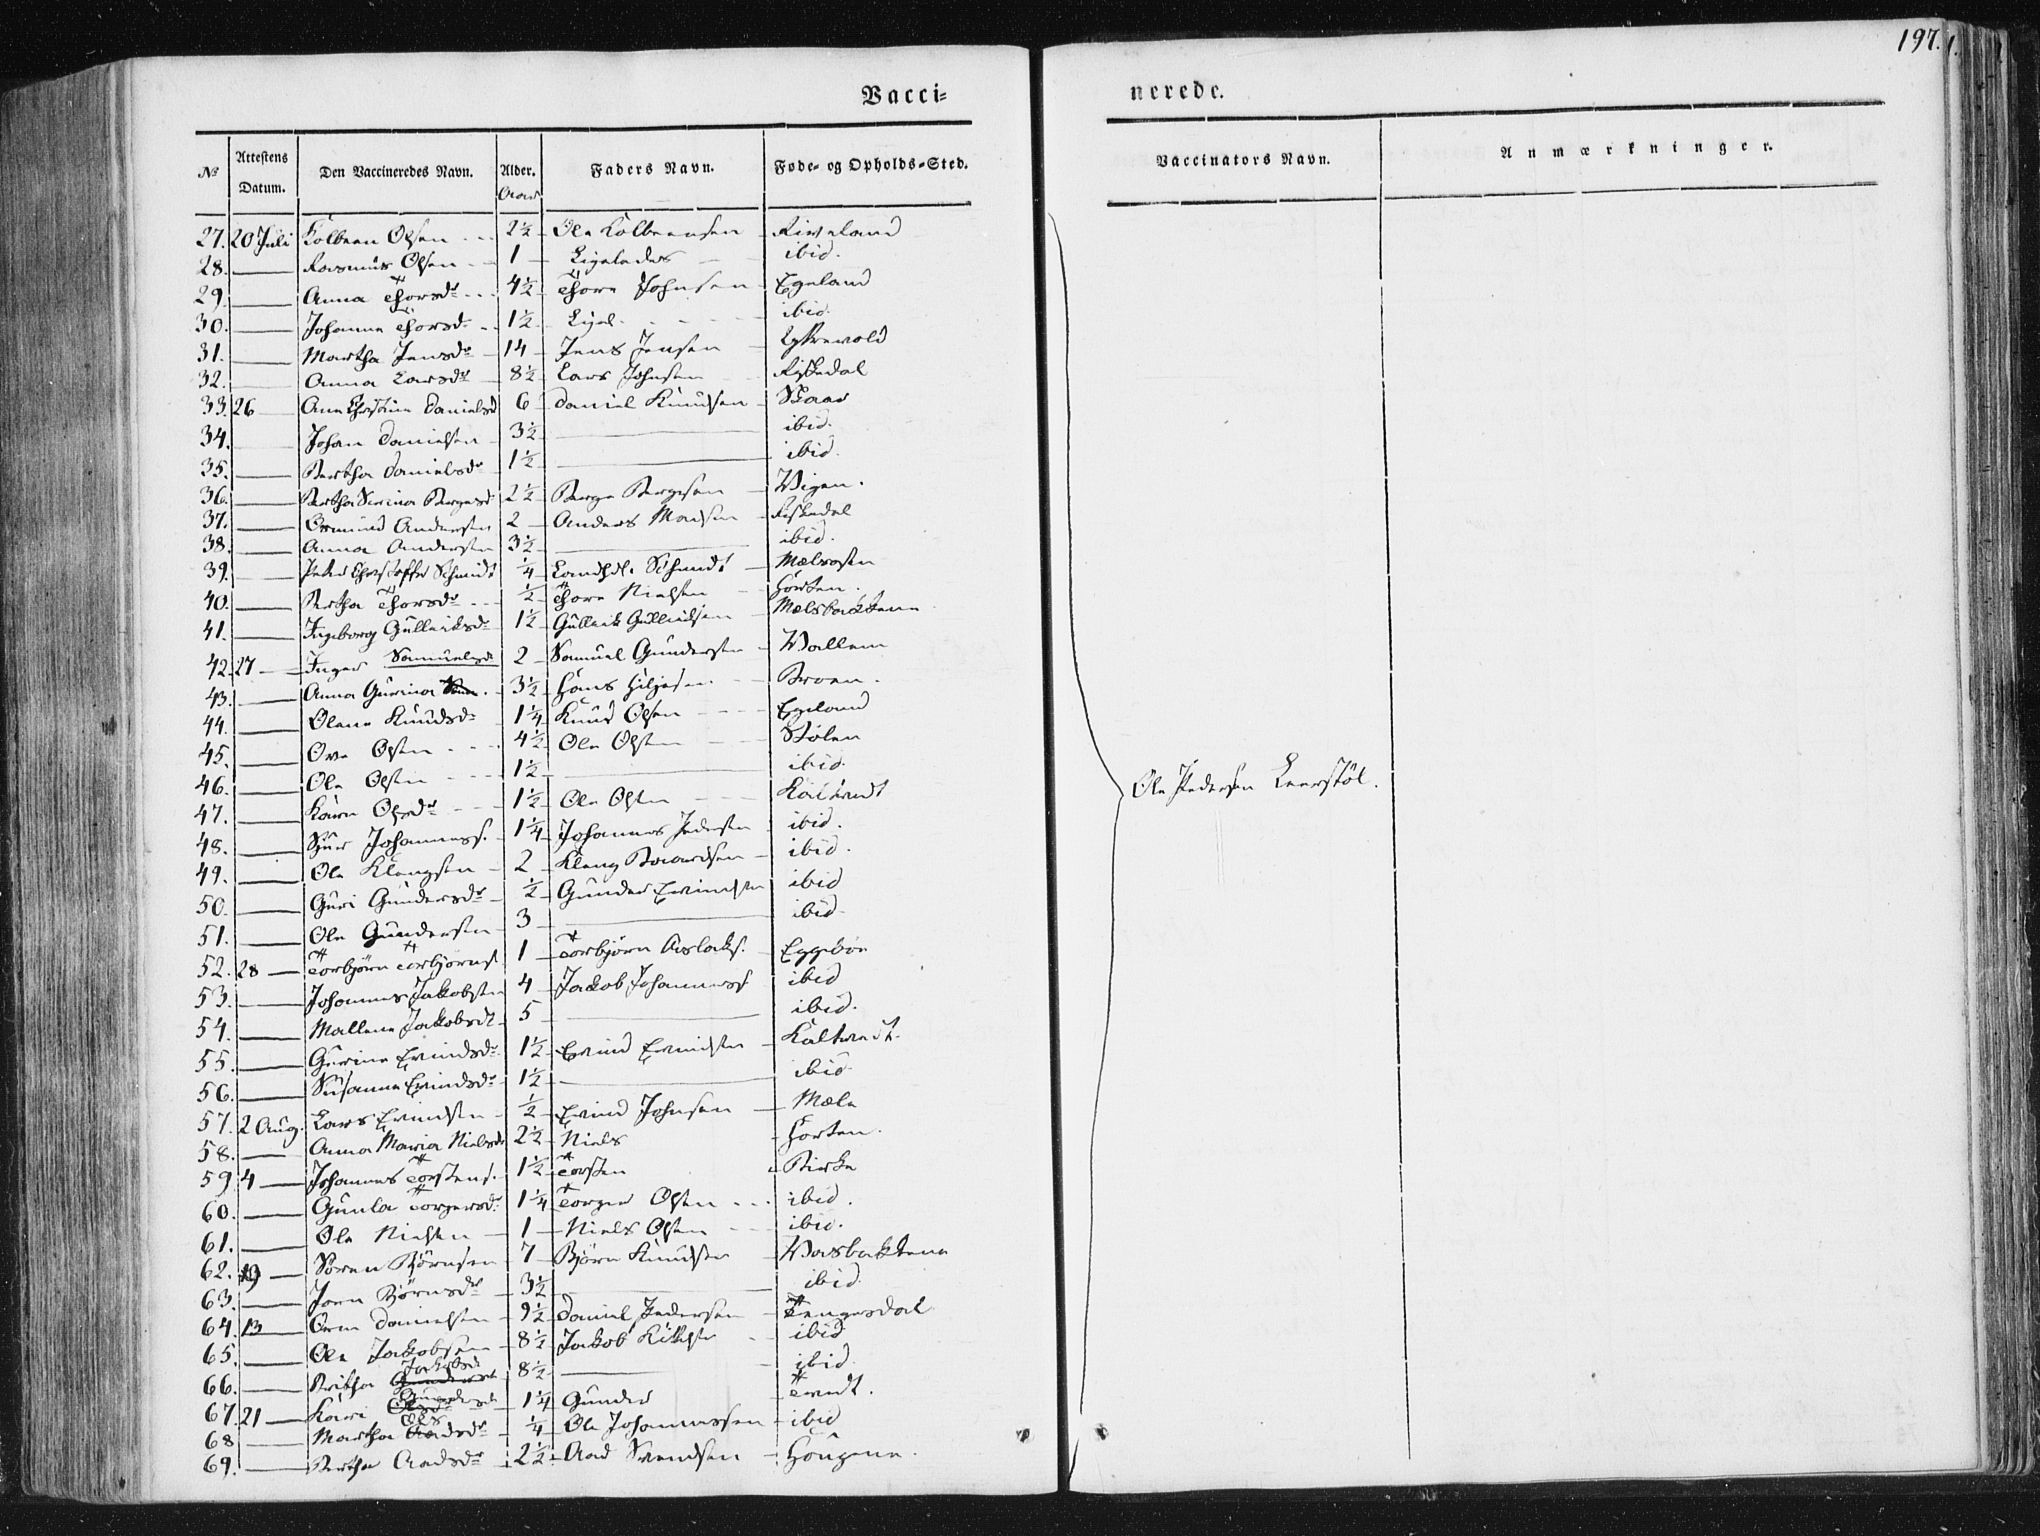 197.
Vacci= nerede.
No Attestens Datum. Den Vaccineredes Navn. Alder. Aar Faders Navn. Føde- og Opholds-Sted. Vaccinators Navn. Anmærkninger.
27. 20 Juli Kolbeen Olsen 2½ Ole Kolbeensen
28. Rasmus Olsen 1 Ligeledes ibid.
29. Anna Thorsdr 4½ Thore Johnsen Egeland
30. Johanne Thorsd. 1½ Ligel. ibid.
31. Martha Jensdr 14 Jens Jensen
32. Anna Larsdr 8½ Lars Johnsen Fiskedal
33. 26 Ane Christine Danielsd 6 Daniel Knudsen Skaar
34. Johan Danielsen 3½ ibid.
35. Bertha Danielsdr 1½ ibid.
36. Bertha Serina Bergesd 2½ Berge Bergesen Wigen.
37. Ormund Andersen 2 Anders Madsen Fiskedal
38. Anna Andersen 3½ ibid.
39. Peder Christoffer Schmidt ¼ Schmidt
40. Bertha Thorsdr ½ Thore Nielsen Horten.
41. Ingeborg Gulleiksdr 1½ Gulleik Gulleiksen Mælsbakkene
42. 27 Inger Samuelsd 2 Samuel Gundersen Wallem
43. Anna Gurina 3½ Hans Broen.
44. Olene Knudsdr 1¼ Knud Olsen Egeland
45. Ove Olsen 4½ Ole Olsen Stølen
46. Ole Olsen 1½ ibid.
47. Karen Olsdr 1½ Ole Olsen Kaltvedt
48. Johanness. 1¼ Johannes Pedersen ibid.
49. Ole Klengsen 2 Kleng ibid.
50. Guri Gundersdr ½ Gunder Evindsen ibid
51. Ole Gundersen 3 ibid.
52. 28 Torbjörn Torbjörns. 1 Torbjörn Aslaks. Eggebøe
53. Johannes Jakobsen 4 Jacob Johanness ibid
54. Mallene Jakobsdr 5 ibid.
55. Gurine Evindsdr 1½ Evind Evindsen Kaltvedt.
56. Susanne Evindsdr 1½ ibid
57. 2 Aug. Lars Evindsen ½ Evind Johnsen Mæle
58. Anna Maria Nielsdr 2½ Niels Horten.
59. 4 Johannes Torstens. 1½ Torsten Birke
60. Gunla Torgersdr 1¼ Torger Olsen ibid.
61. Ole Nielsen 1 Niels Olsen ibid.
62. Sören Björnsen 7 Björn Knudsen
63. Joren Björnsdr 3½ ibid.
64. 13 Orm Danielsen 9½ Daniel Pedersen Tengesdal
65. Ole Jakobsen 8½ Jakob ibid
66. Britha Jakobsd 8½ ibid.
67. 21 Kari Gundersd 1¼ Gunder Tvedt.
68 Martha Olsdr ¼ Ole Johannessen ibid
69. Bertha Aadsdr 2½ Aad Svendsen Hougene.
Ole Pedersen Leerstöl.